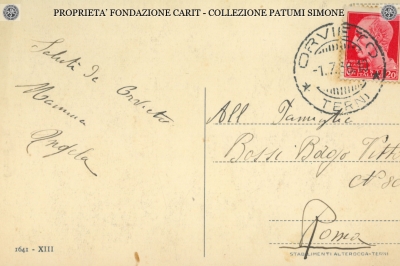 PROPRIETA' FONDAZIONE CARIT - COLLEZIONE PATUMI SIMONE
ORVIETO
-1.7.
* TERNI *
20
Saluti da Orvieto
Mamma
Angela
All Famiglia
Bossi Bago
Nº 80
Roma
1641 - XIII
STABILIMENTI ALTEROCCA-TERNI